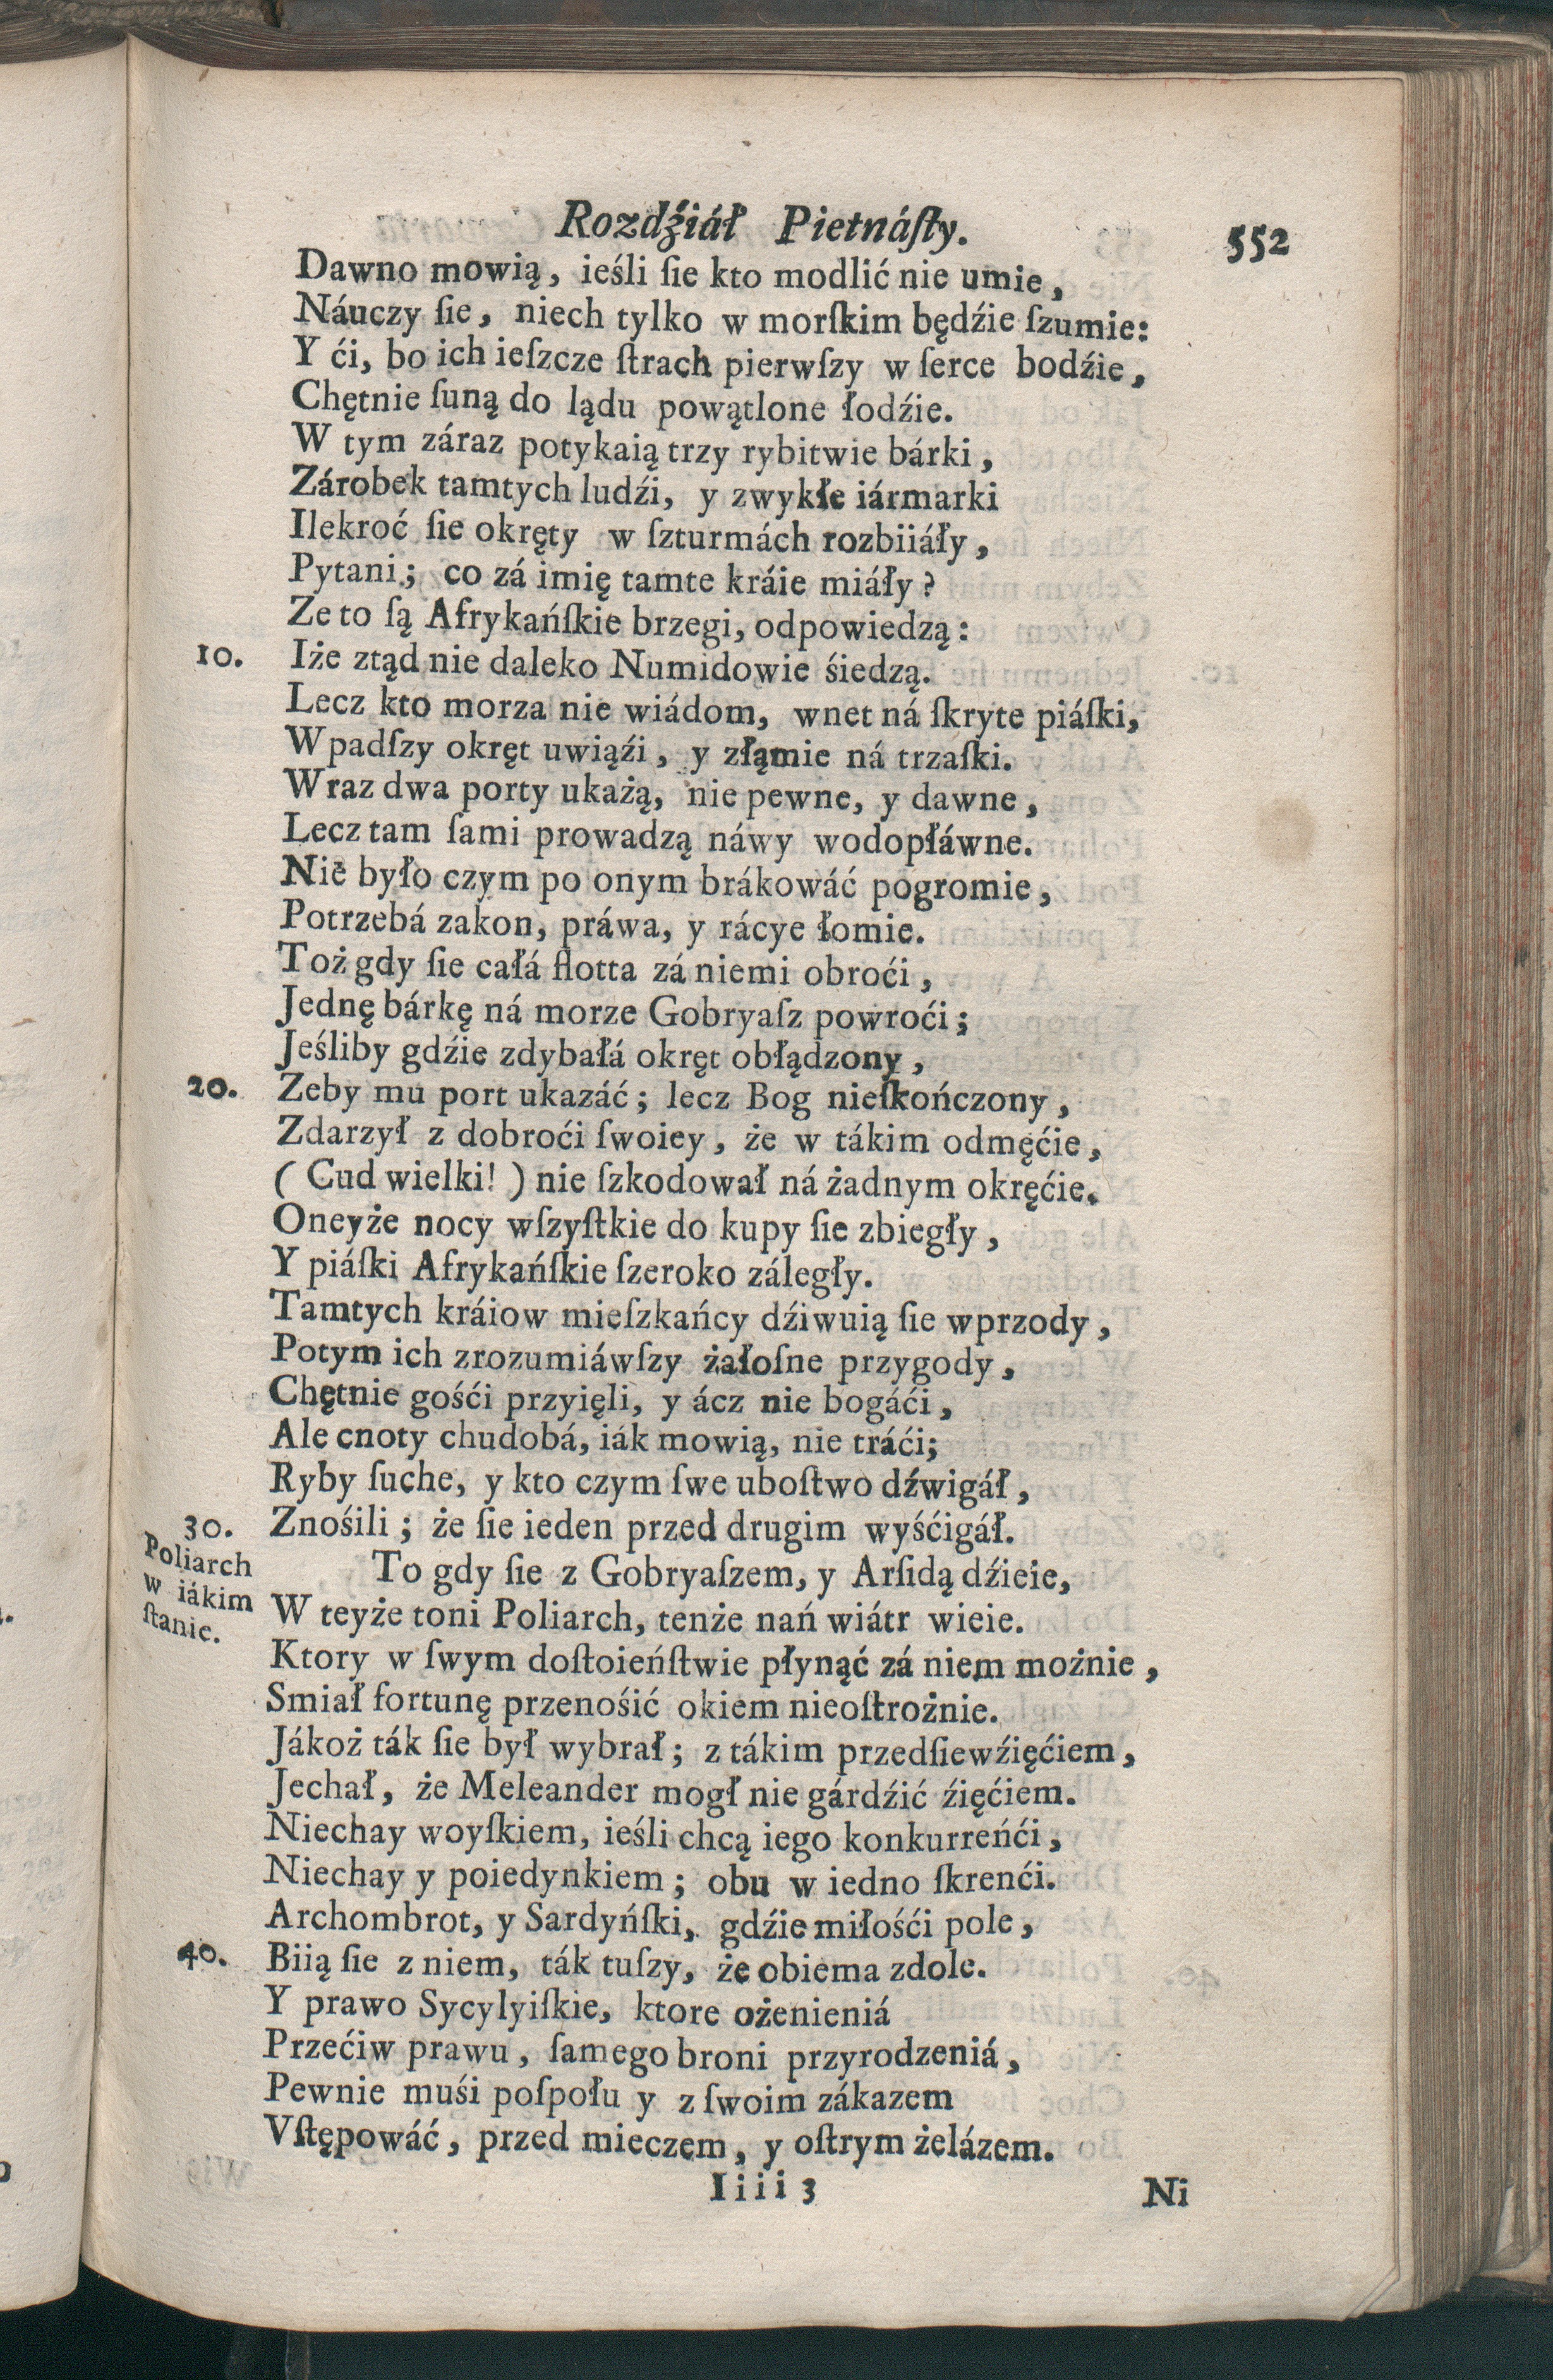 Rozdźiáł Pietnáſty. 552
Dawno mowią, ieśli ſie kto modlić nie umie,
Náuczy ſie, niech tylko w morſkim będźie ſzumie:
Y ći, bo ich ieſzcze ſtrach pierwſzy w ſerce bodźie,
Chętnie ſuną do lądu powątlone łodźie.
W tym záraz potykaią trzy rybitwie bárki,
Zárobek tamtych ludźi, y zwykłe iármarki
Ilekroć ſie okręty w ſzturmách rozbiiáły,
Pytani; co zá imię tamte kráie miáły?
Ze to ſą Afrykańſkie brzegi, odpowiedzą:
10. Iże ztąd nie daleko Numidowie śiedzą.
Lecz kto morza nie wiádom, wnet ná ſkryte piáſki,
Wpadſzy okręt uwiąźi, y złąmie ná trzaſki.
Wraz dwa porty ukażą, nie pewne, y dawne,
Lecz tam ſami prowadzą náwy wodopłáwne.
Nie było czym po onym brákowáć pogromie,
Potrzebá zakon, práwa, y rácye łomie.
Toż gdy ſie całá flotta zá niemi obroći,
Jednę bárkę ná morze Gobryaſz powroći;
Jeśliby gdźie zdybałá okręt obłądzony,
20. Zeby mu port ukazáć; lecz Bog nieſkończony,
Zdarzył z dobroći ſwoiey, że w tákim odmęćie,
( Cud wielki! ) nie ſzkodował ná żadnym okręćie.
Oneyże nocy wſzyſtkie do kupy ſie zbiegły,
Y piáſki Afrykańſkie ſzeroko záległy.
Tamtych kráiow mieſzkańcy dźiwuią ſie wprzody,
Potym ich zrozumiáwſzy żałoſne przygody,
Chętnie gośći przyięli, y ácz nie bogáći,
Ale cnoty chudobá, iák mowią, nie tráći;
Ryby ſuche, y kto czym ſwe uboſtwo dźwigáł,
30. Znośili; że ſie ieden przed drugim wyśćigáł.
Poliarch
w iákim
ſtanie.
To gdy ſie z Gobryaſzem, y Arſidą dźieie,
W teyże toni Poliarch, tenże nań wiátr wieie.
Ktory w ſwym doſtoieńſtwie płynąć zá niem możnie,
Smiał fortunę przenośić okiem nieoſtrożnie.
Jákoż ták ſie był wybrał; z tákim przedſiewźięćiem,
Jechał, że Meleander mogł nie gárdźić źięćiem.
Niechay woyſkiem, ieśli chcą iego konkurreńći,
Niechay y poiedynkiem; obu w iedno ſkrenći.
Archombrot, y Sardyńſki, gdźie miłośći pole,
40. Biią ſie z niem, ták tuſzy, że obiema zdole.
Y prawo Sycylyiſkie, ktore ożenieniá
Przećiw prawu, ſamego broni przyrodzeniá,
Pewnie muśi poſpołu y z ſwoim zákazem
Vſtępowáć, przed mieczem, y oſtrym żelázem.
Iiii 3 Ni